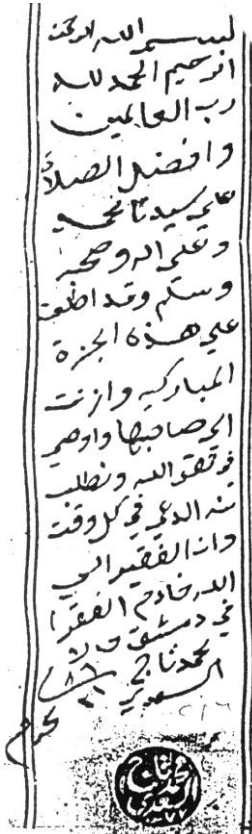 بسم الله الرحمن
الرحيم الحمد لله
رب العالمين
وافضل الصلاة
على سيدنا محمد
وعلى اله وصحبه
وسلم وقد اطلعت
على هذه الاجزة
المباركه وازنت
الى صاحبها واوصي
في تقو الله ونطلب
منه الدعي في كل وقت
وانا الفقير الى
الله خادم الفقرا
في دمشق
محمد ناجي
السعدي
محرم